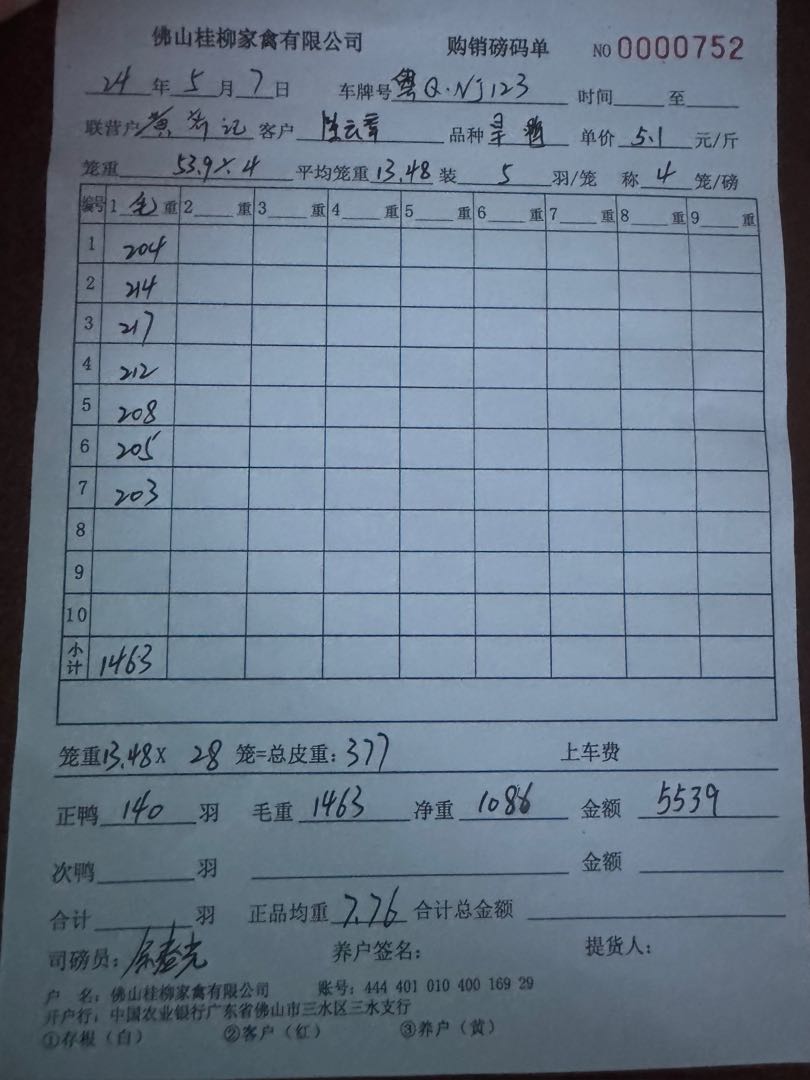 佛山桂柳家禽有限公司 购销磅码单 NO 0000752
24 年 5 月 7 日 车牌号 粤Q·NJ123 时间 至
联营户 黄 记 客户 陈云章 品种 单价 5.1 元/斤
笼重 53.9 4 平均笼重 13.48 装 5 羽/笼 称 4 笼/磅
编号 1 毛 重 2 重 3 重 4 重 5 重 6 重 7 重 8 重 9 重
1 204
2 214
3 217
4 212
5 208
6 205
7 203
8
9
10
小计 1463
笼重 13.48 X 28 笼=总皮重: 377 上车费
正鸭 140 羽 毛重 1463 净重 1086 金额 5539
次鸭 羽 金额
合计 羽 正品均重 7.76 合计总金额
司磅员: 养户签名: 提货人:
户 名: 佛山桂柳家禽有限公司 账号: 444 401 010 400 169 29
开户行: 中国农业银行广东省佛山市三水区三水支行
①存根(白) ②客户(红) ③养户(黄)